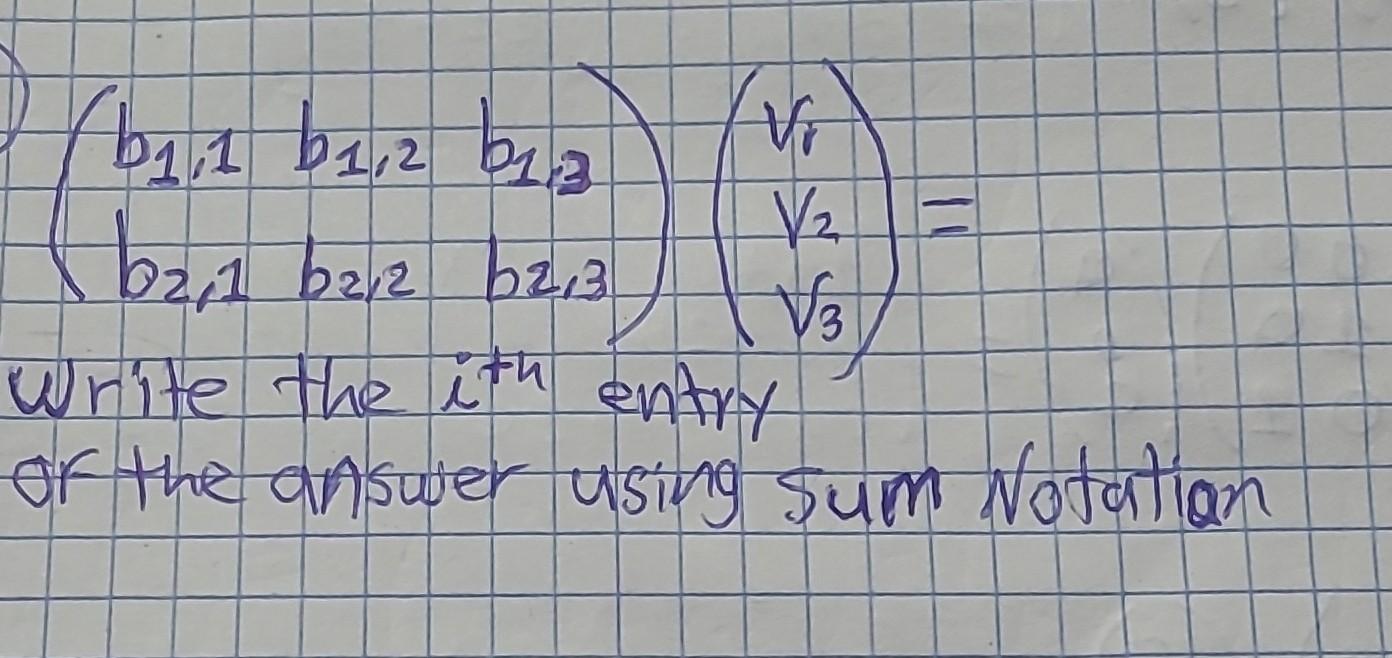 ( b1,1 b1,2 b1,3 ) ( v1
b2,1 b2,2 b2,3 v2 ) =
v3
Write the i^th entry
of the answer using sum Notation